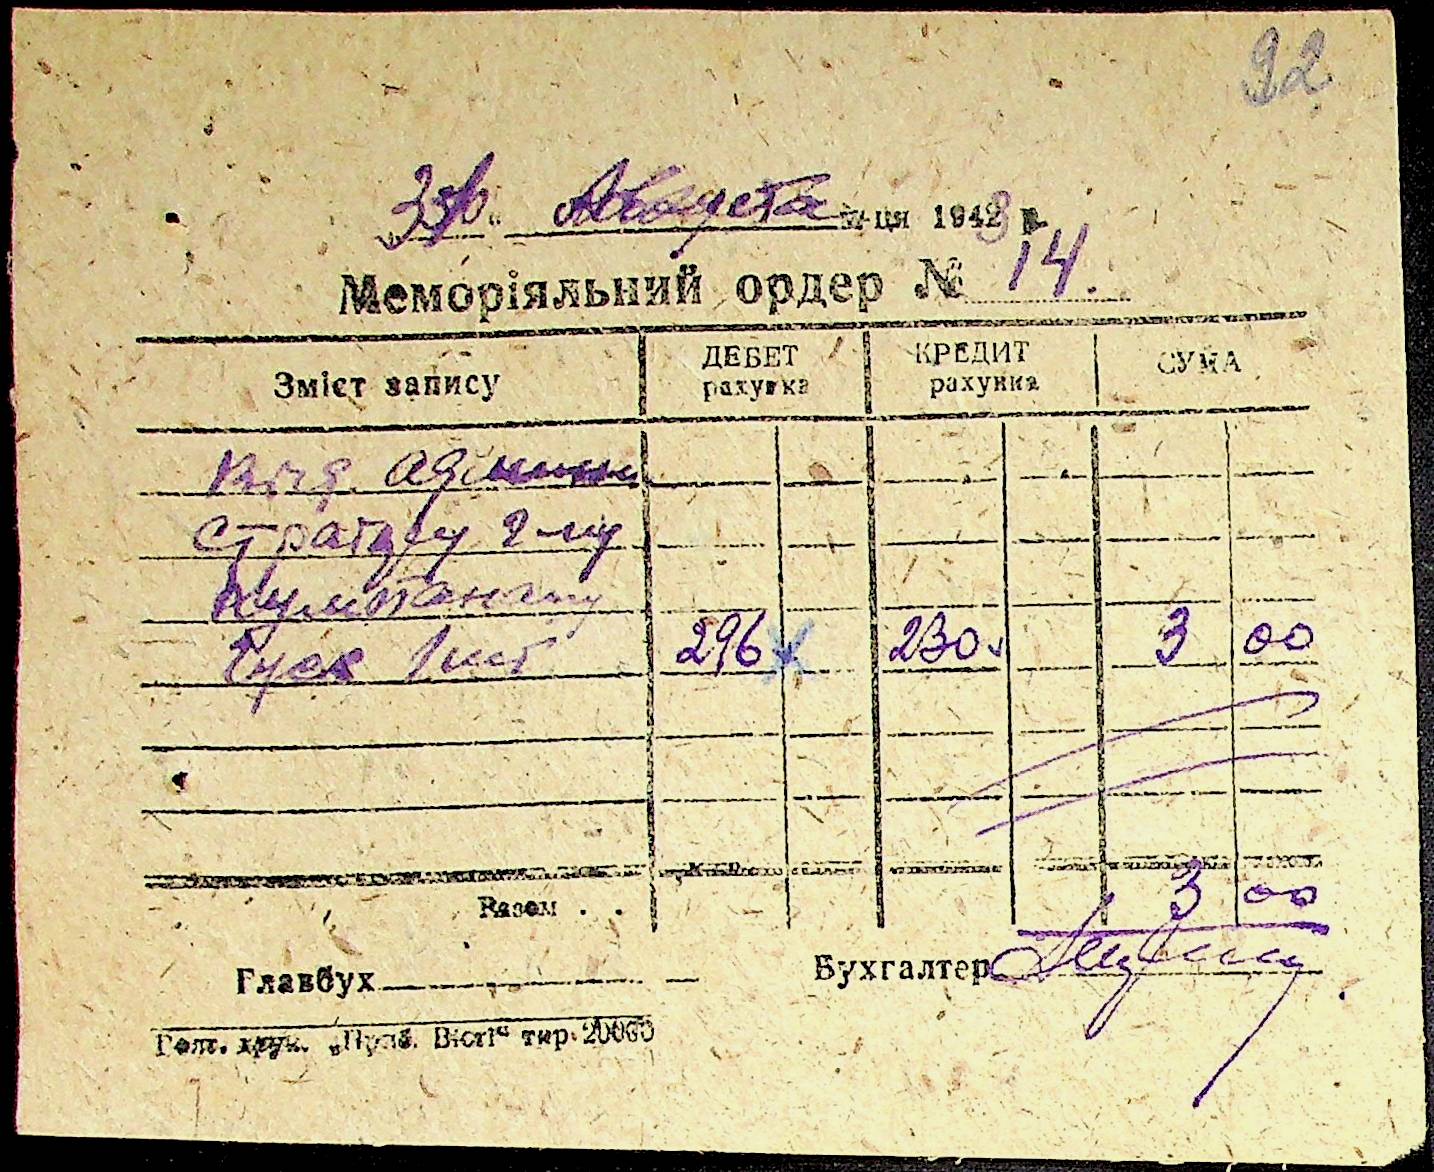 92
Августа м-ця 1943 р.
Меморіяльний ордер № 14.
Зміст запису ДЕБЕТ рахунка КРЕДИТ рахунка СУМА
Від. админи
стратору 2-му
Гуся 1 шт 296 230 3 00
Разом . . 3 00
Главбух Бухгалтер
Голт. друк. „Приб. Вісті“ тир. 20000